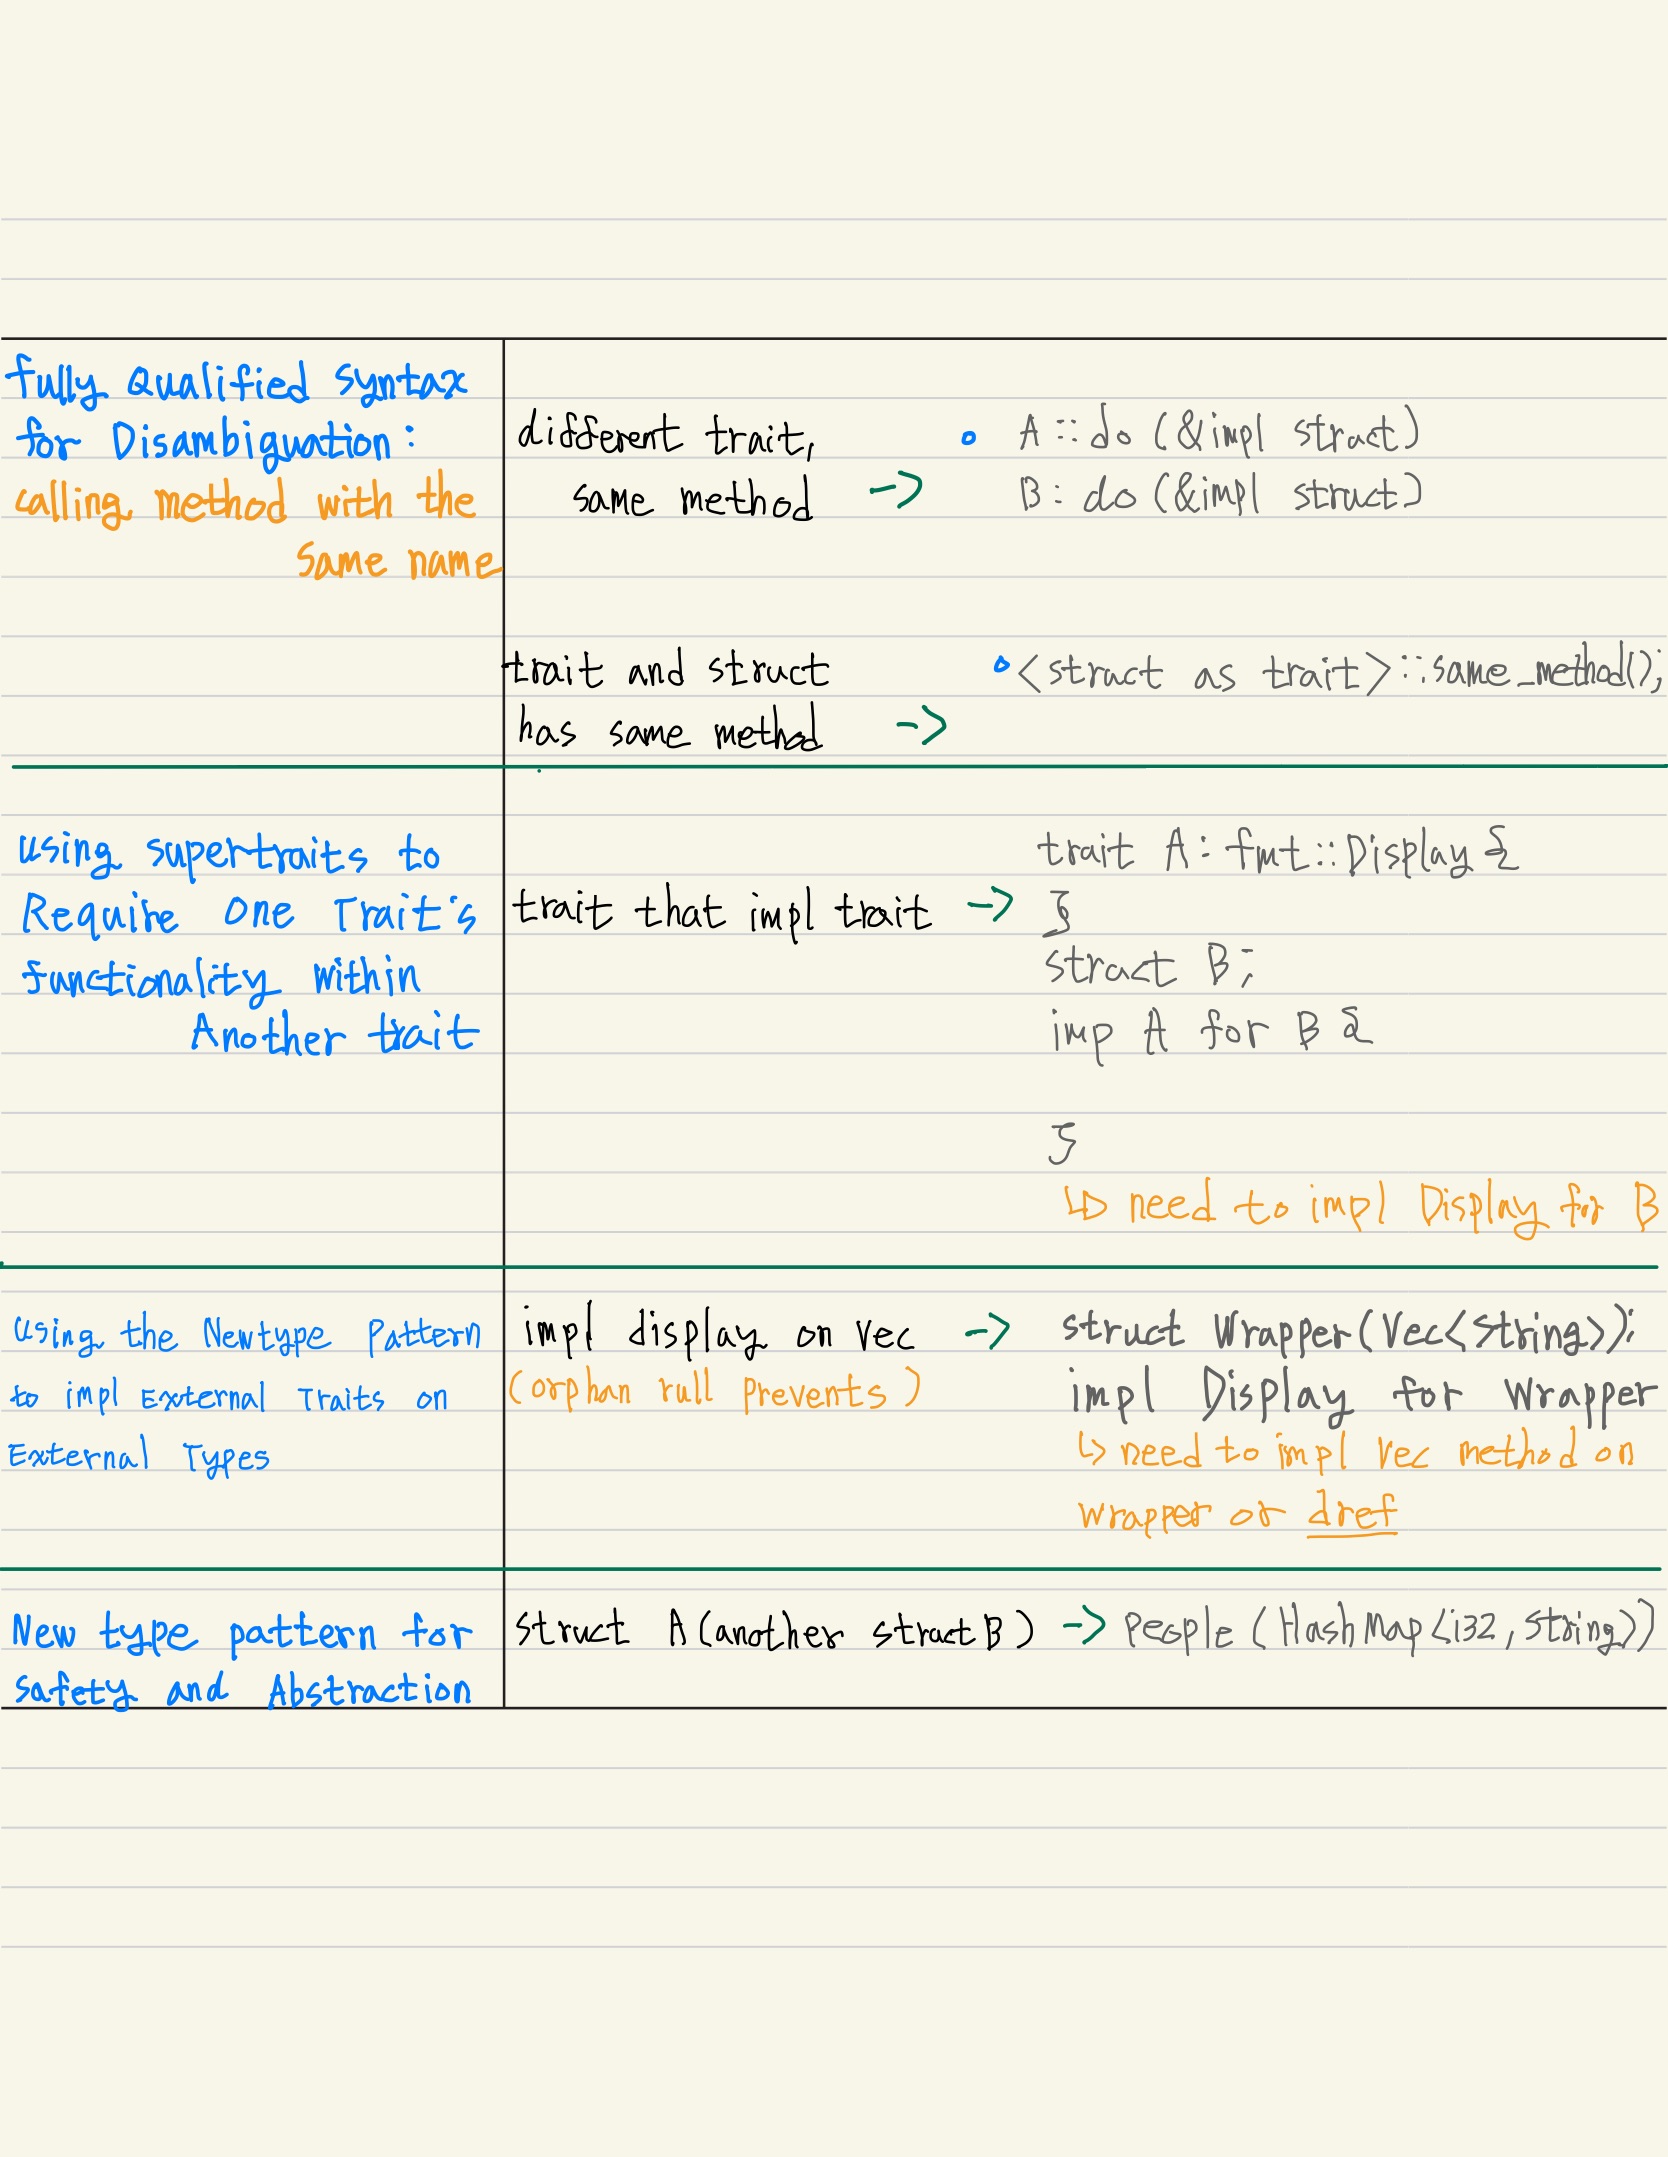 fully Qualified Syntax
for Disambiguation:
calling method with the
same name
different trait,
same method ->
A::do (&impl struct)
B: do (&impl struct)
trait and struct
has same method ->
<struct as trait>::same_method();
using supertraits to
Require One Trait's
functionality within
Another trait
trait that impl trait ->
trait A: fmt::Display {
}
struct B;
imp A for B {
}
↳ need to impl Display for B
Using the Newtype Pattern
to impl External Traits on
External Types
impl display on Vec ->
(orphan rull prevents)
struct Wrapper(Vec<String>);
impl Display for Wrapper
↳ need to impl Vec method on
wrapper or dref
New type pattern for
safety and Abstraction
struct A(another struct B) -> People (HashMap<i32, String>)